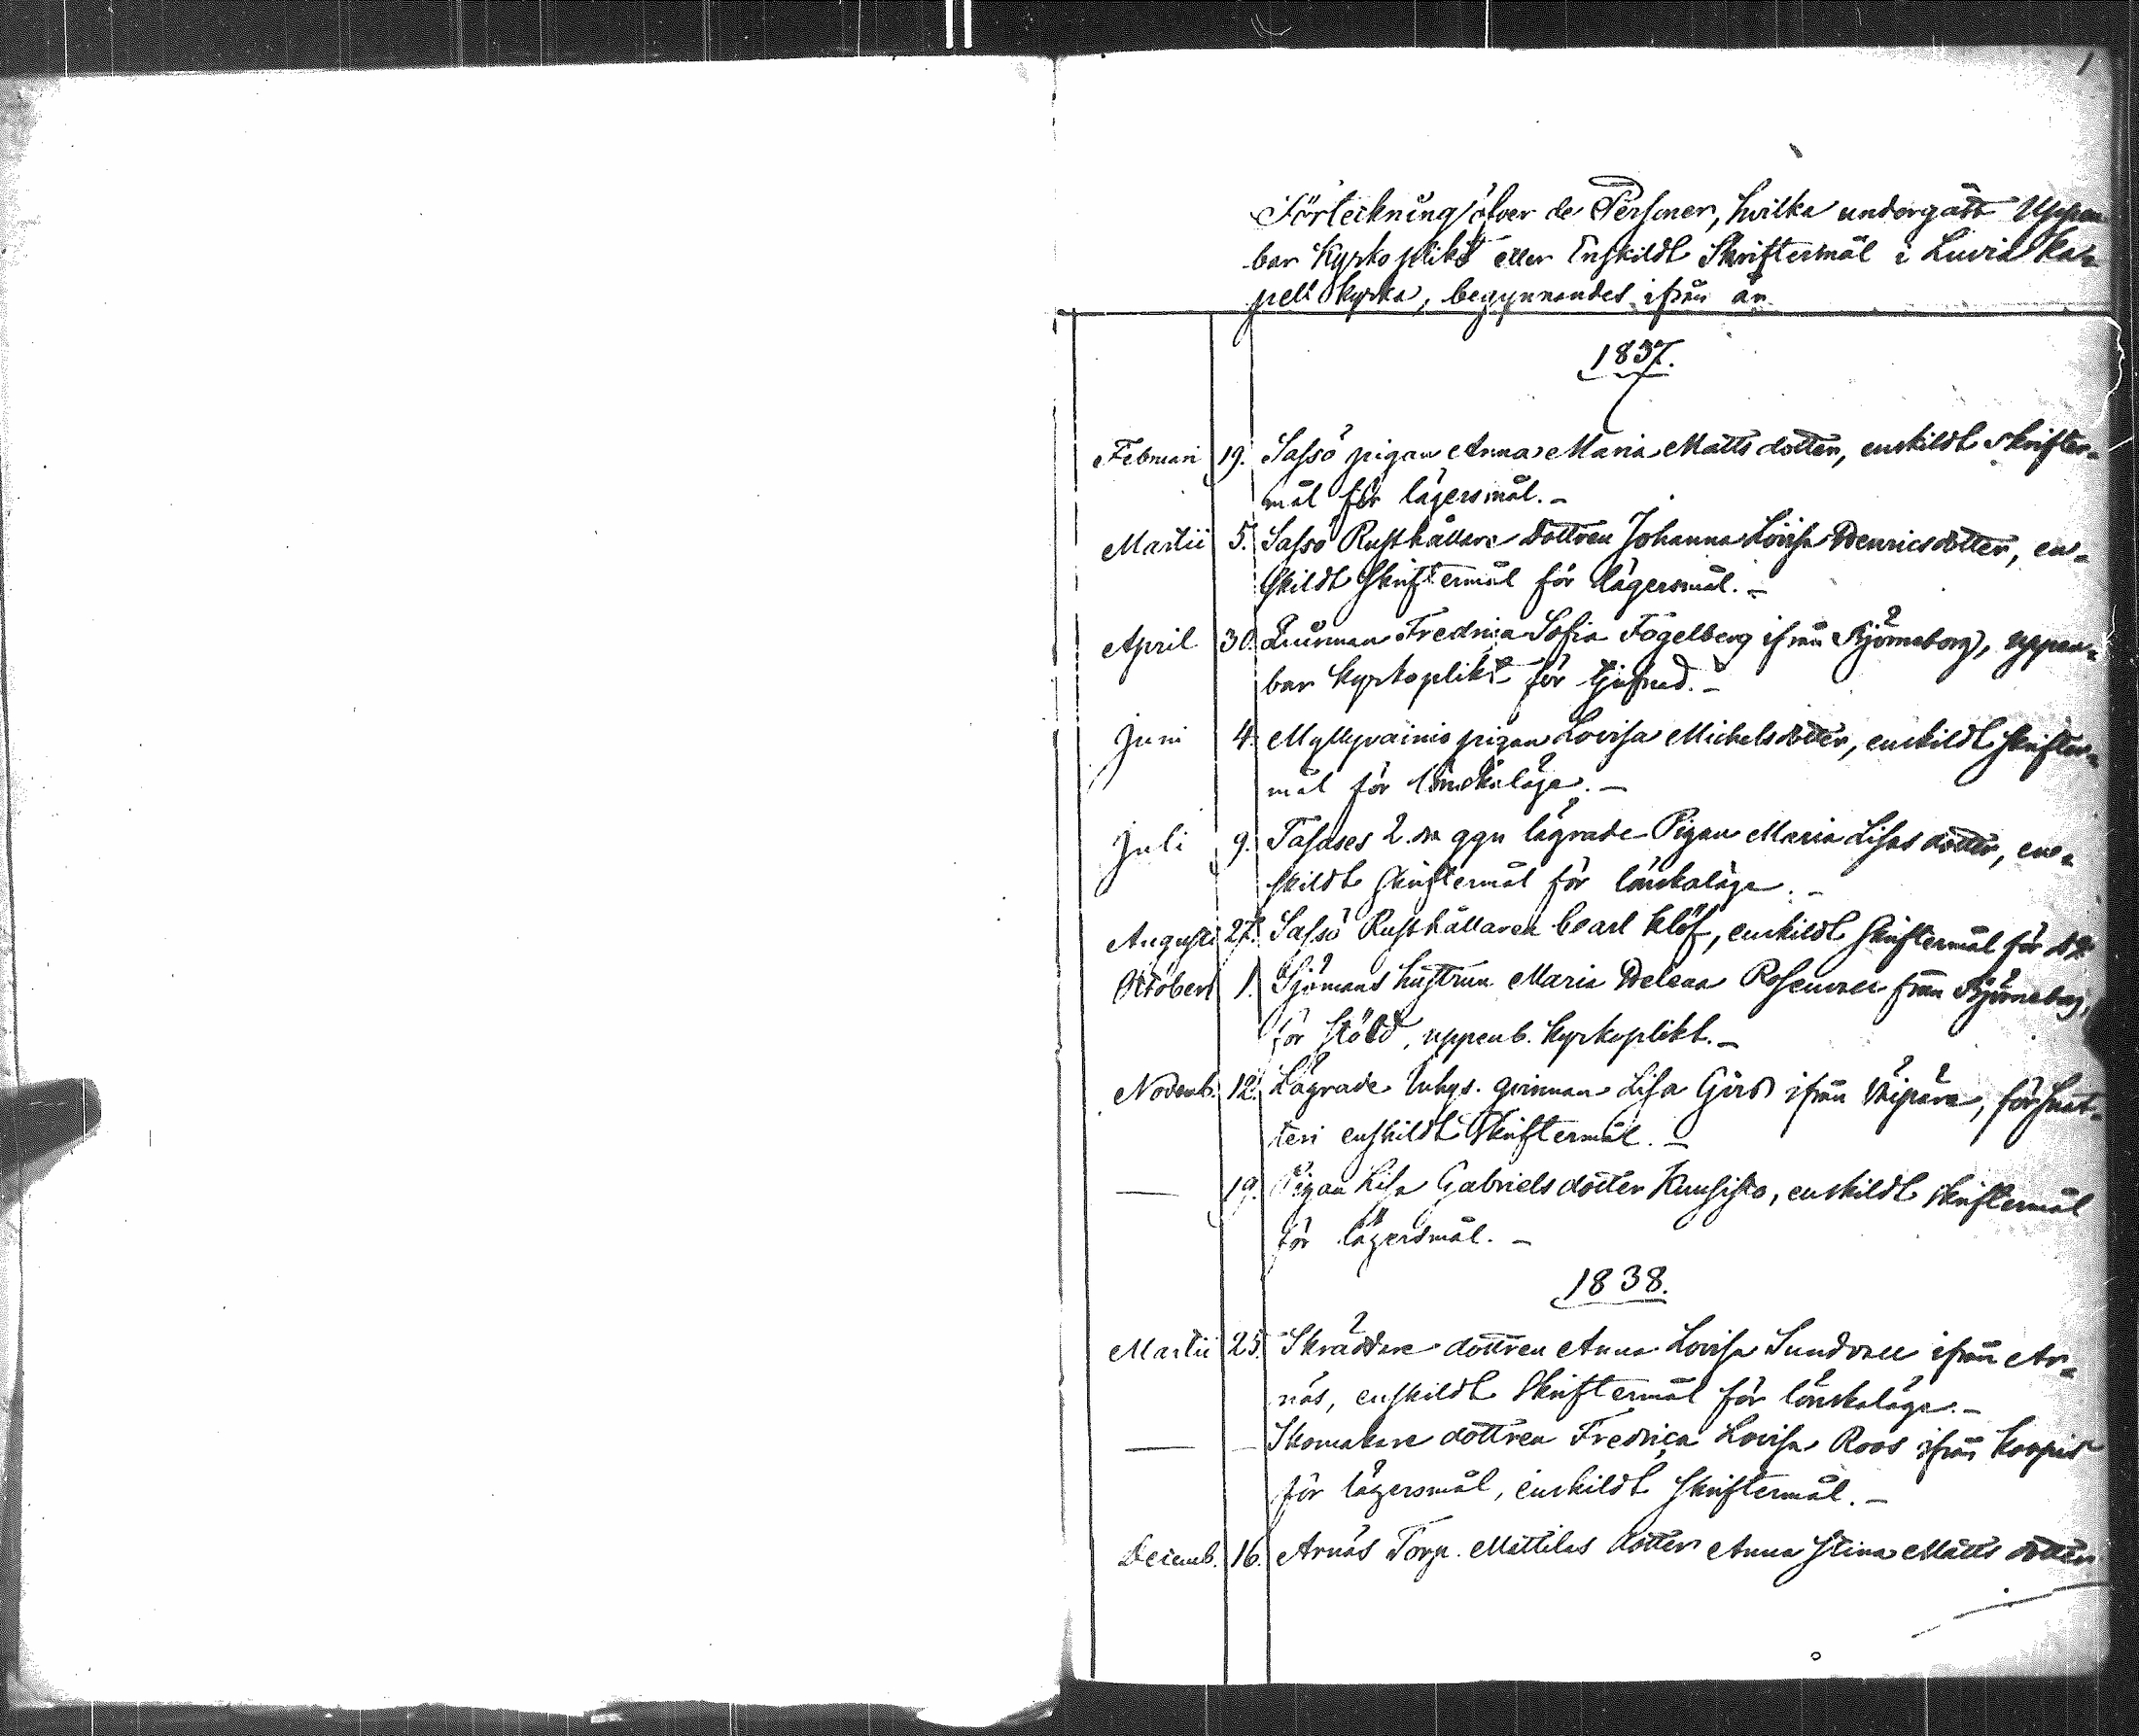 1
Förteckning öfver de Personer, hvilka undergått Uppen
bar Kyrkoplikt eller Enskildt Skriftermål i Luvia Ka-
pell kyrka, begynnandes ifrån år
1837.
Februari 19. Sassö pigan Anna Maria Matts dotter, enskildt skrifter-
mål för lägersmål. -
Martii 5. Sassö Rusthållare Dottren Johanna Lovisa Henricsdotter, en-
skildt skriftermål för lägersmål. -
April 30. Fredrica Sofia Fogelberg ifrån Björneborg, uppen-
bar kyrkoplikt för tjufnad. -
Juni 4. Myllyvainio pigan Lovisa Michelsdotter, enskildt skrifter-
mål för lönskaläge. -
Juli 9. 2.dra ggn lägrade Pigan Maria Lisas dotter, en-
skildt skriftermål för lönskaläge. -
Augusti 27. Sassö Rusthållaren Carl Klöf, enskildt skriftermål för d:o
October 1. Sjömans hustrun Maria Helena Rosenvall från Björneborg,
för stöld, uppenb. kyrkoplikt. -
Novemb. 12. Lägrade Inhys. qvinnan Lisa Girs ifrån för snat-
teri enskildt skriftermål. -
— 19. Pigan Lisa Gabriels dotter Kuusisto, enskildt skriftermål
för lägersmål. -
1838.
Martii 25. Skräddare dottren Anna Lovisa Sundvall ifrån Ar-
näs, enskildt skriftermål för lönskaläge. -
— — Skomakare dottren Fredrica Lovisa Roos ifrån
för lägersmål, enskildt skriftermål. -
Decemb. 16. Arnäs Torp. Mattilas dotter Anna Stina Matts dotter